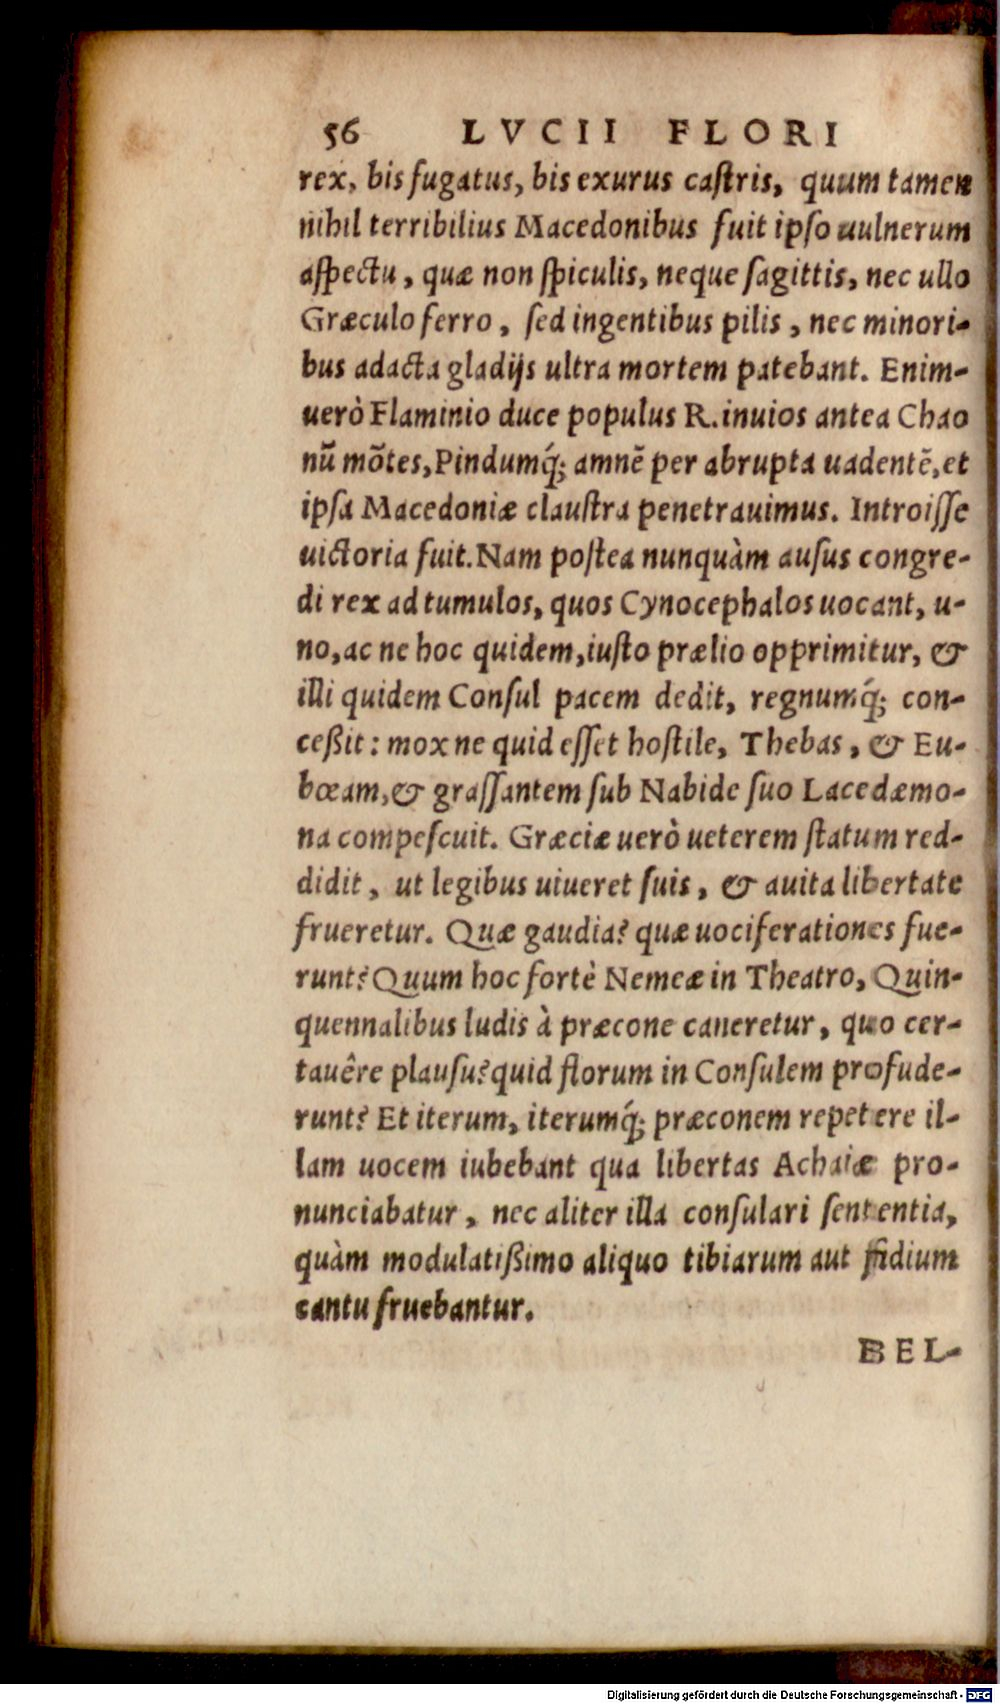 56 LVCII FLORI
rex, bis fugatus, bis exurus castris, quum tamen
nihil terribilius Macedonibus fuit ipso uulnerum
aspectu, quæ non spiculis, neque sagittis, nec ullo
Græculo ferro, sed ingentibus pilis, nec minori-
bus adacta gladijs ultra mortem patebant. Enim-
uerò Flaminio duce populus R. inuios antea Chao
nũ mõtes, Pindumq́; amnẽ per abrupta uadentẽ, et
ipsa Macedoniæ claustra penetrauimus. Introisse
uictoria fuit. Nam postea nunquàm ausus congre-
di rex ad tumulos, quos Cynocephalos uocant, u-
no, ac ne hoc quidem, iusto prælio opprimitur, &
illi quidem Consul pacem dedit, regnumq́; con-
ceßit: mox ne quid esset hostile, Thebas, & Eu-
bœam, & grassantem sub Nabide suo Lacedæmo-
na compescuit. Græciæ uerò ueterem statum red-
didit, ut legibus uiueret suis, & auita libertate
frueretur. Quæ gaudia? quæ uociferationes fue-
runt? Quum hoc fortè Nemeæ in Theatro, Quin-
quennalibus ludis à præcone caneretur, quo cer-
tauêre plausu? quid florum in Consulem profude-
runt? Et iterum, iterumq́; præconem repetere il-
lam uocem iubebant qua libertas Achaiæ pro-
nunciabatur, nec aliter illa consulari sententia,
quàm modulatißimo aliquo tibiarum aut fidium
cantu fruebantur.
BEL-
Digitalisierung gefördert durch die Deutsche Forschungsgemeinschaft - DFG